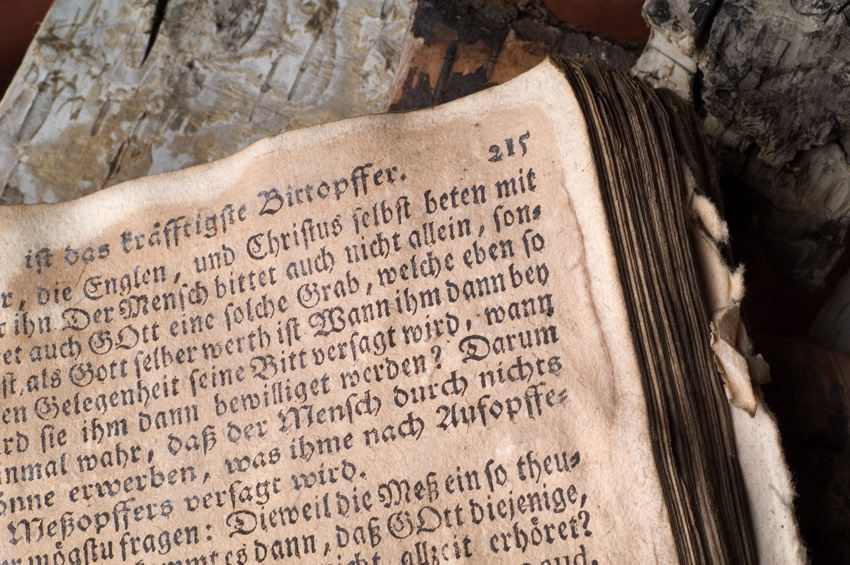 215
ist das kräfftigste Bittopffer.
die Englen, und Christus selbst beten mit
ihn. Der Mensch bittet auch nicht allein, son-
auch GOtt eine solche Grab, welche eben so
als Gott selber werth ist Wann ihm dann bey
Gelegenheit seine Bitt versagt wird, wann
sie ihm dann bewilliget werden? Darum
wahr, daß der Mensch durch nichts
erwerben, was ihme nach Aufopffe-
Meßopffers versagt wird.
mögstu fragen: Dieweil die Meß ein so theu-
es dann, daß GOtt diejenige,
allzeit erhöret?